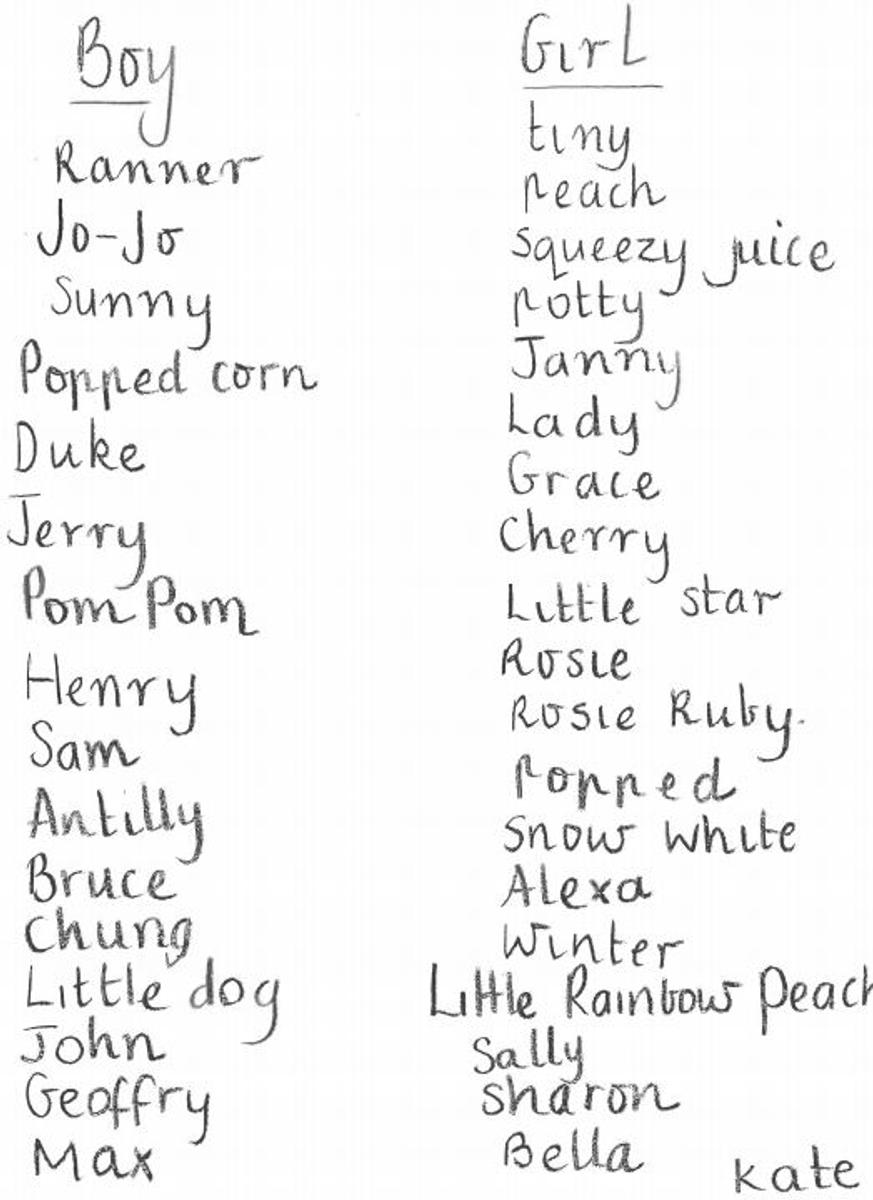 Boy
Ranner
Jo-Jo
Sunny
Popped corn
Duke
Jerry
Pom Pom
Henry
Sam
Antilly
Bruce
Chung
Little dog
John
Geoffry
Max
Girl
tiny
Peach
Squeezy juice
Potty
Janny
Lady
Grace
Cherry
Little star
Rosie
Rosie Ruby.
Popped
Snow white
Alexa
Winter
Little Rainbow Peach
Sally
Sharon
Bella
Kate